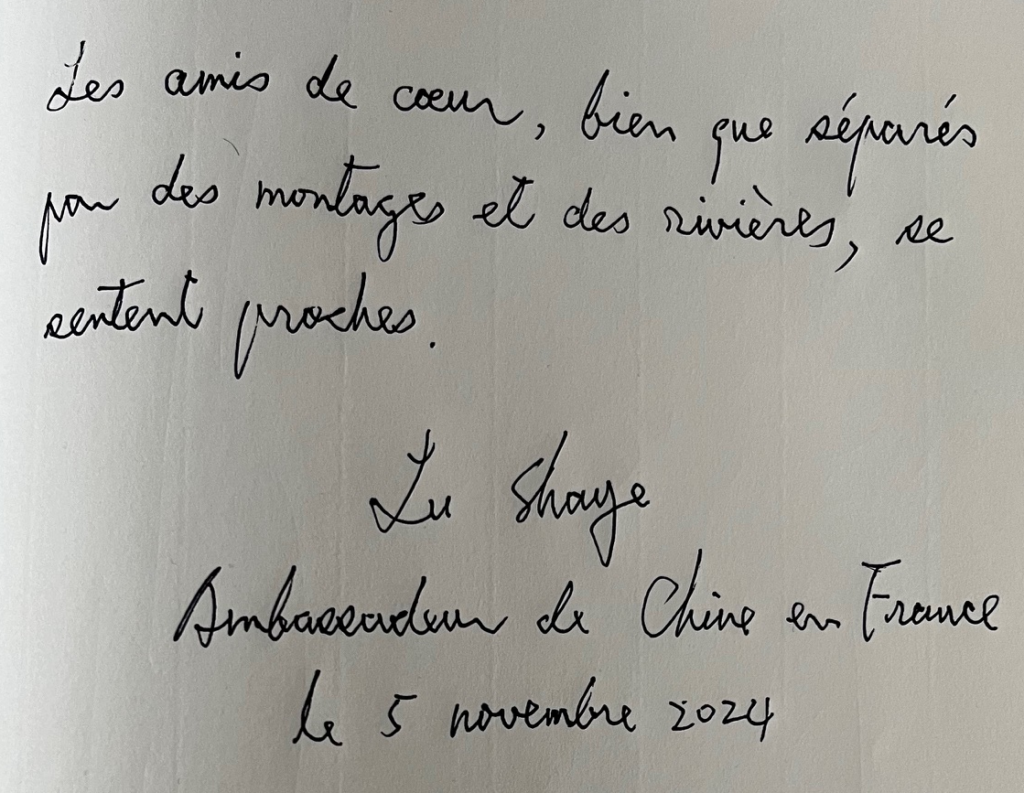 Les amis de cœur, bien que séparés
par des montages et des rivières, se
sentent proches.
Lu Shaye
Ambassadeur de Chine en France
le 5 novembre 2024